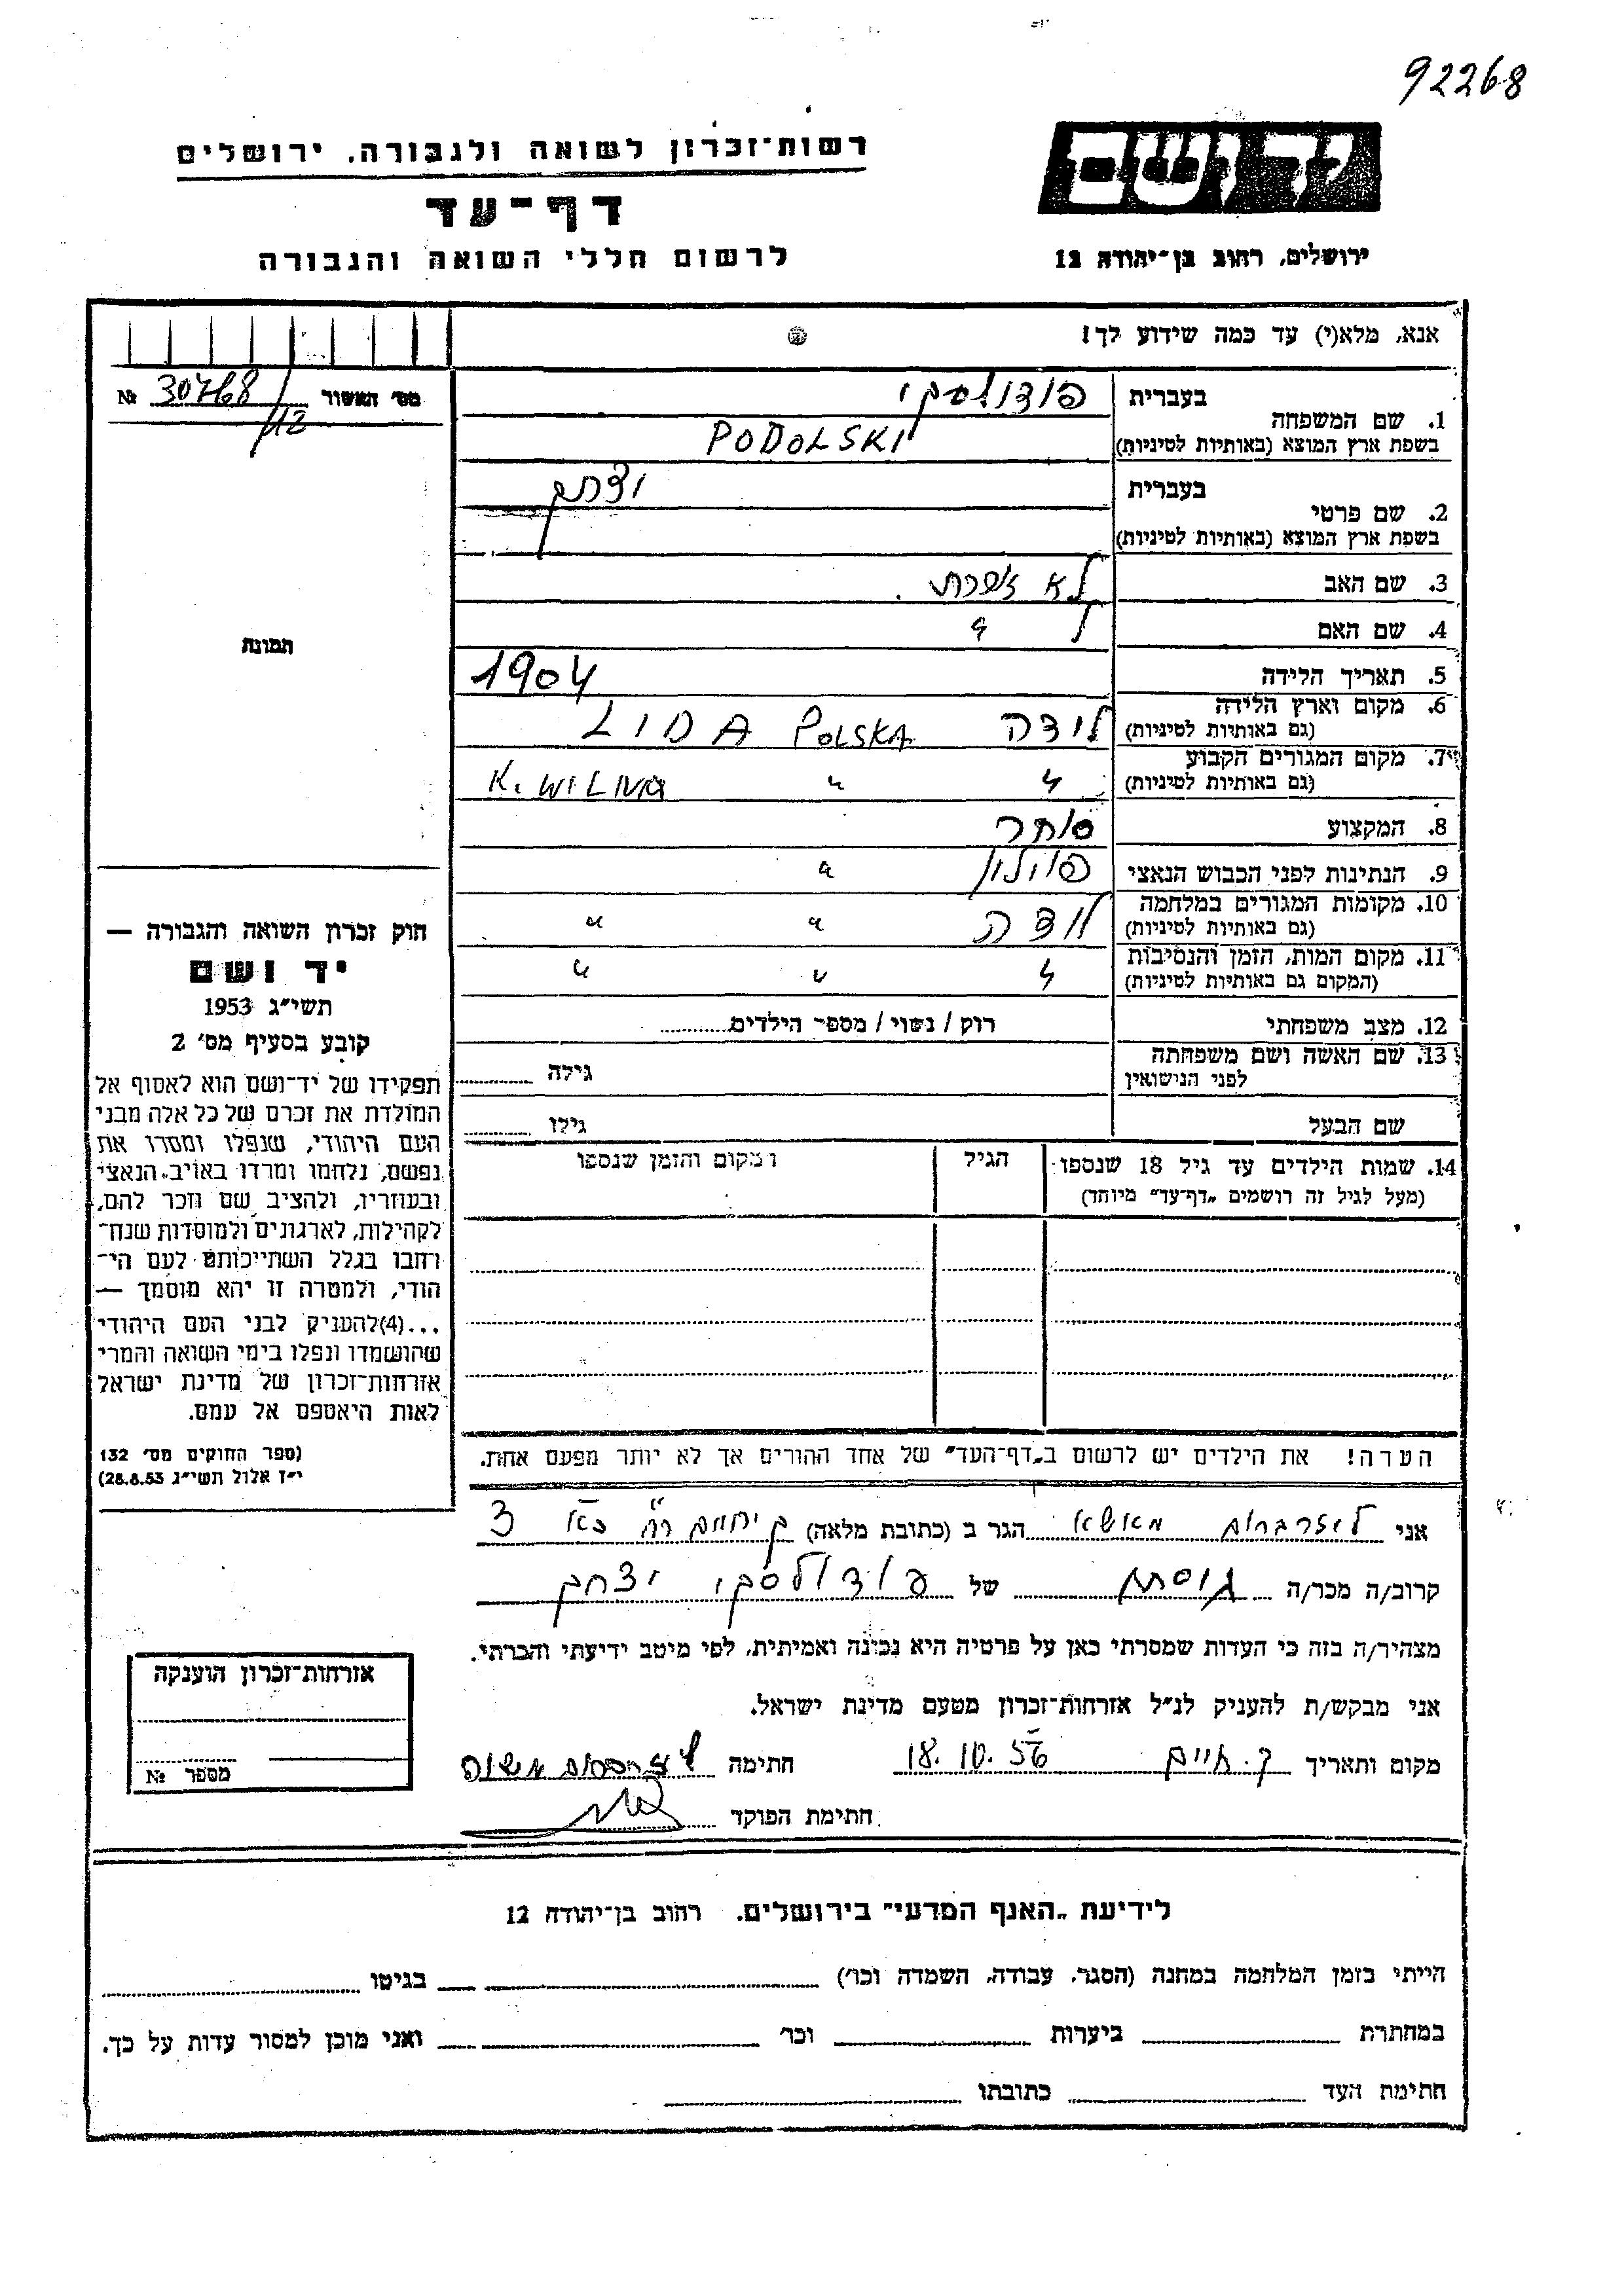 92268
יד ושם
רשות־זכרון לשואה ולגבורה, ירושלים
דף־עד
לרשום חללי השואה והגבורה
ירושלים, רחוב בן־יהודה 12
אנא, מלא(י) עד כמה שידוע לך!
מס' האשור 30768/112 №
בעברית פודולסקי
1. שם המשפחה
בשפת ארץ המוצא (באותיות לטיניות) PODOLSKI
בעברית יצחק
2. שם פרטי
בשפת ארץ המוצא (באותיות לטיניות)
3. שם האב לא
4. שם האם
תמונה
5. תאריך הלידה 1904
6. מקום וארץ הלידה לידה POLSKA LIDA
(גם באותיות לטיניות)
7. מקום המגורים הקבוע
(גם באותיות לטיניות) " " K. WILNA
8. המקצוע סוחר
9. הנתינות לפני הכבוש הנאצי פולין "
10. מקומות המגורים במלחמה
(גם באותיות לטיניות) לידה " "
11. מקום המות, הזמן והנסיבות
(המקום גם באותיות לטיניות) " " "
12. מצב משפחתי רוק / נשוי / מספר הילדים
13. שם האשה ושם משפחתה
לפני הנישואין גילה
שם הבעל גילו
14. שמות הילדים עד גיל 18 שנספו הגיל המקום והזמן שנספו
(מעל לגיל זה רושמים „דף־עד" מיוחד)
חוק זכרון השואה והגבורה —
יד ושם
תשי"ג 1953
קובע בסעיף מס' 2
תפקידו של יד־ושם הוא לאסוף אל
המולדת את זכרם של כל אלה מבני
העם היהודי, שנפלו ומסרו את
נפשם, נלחמו ומרדו באויב הנאצי
ובעוזריו, ולהציב שם וזכר להם,
לקהילות, לארגונים ולמוסדות שנח־
רחבו בגלל השתייכותם לעם הי־
הודי, ולמטרה זו יהא מוסמך —
...(4)להעניק לבני העם היהודי
שהושמדו ונפלו בימי השואה והמרי
אזרחות־זכרון של מדינת ישראל
לאות היאספם אל עמם.
(ספר החוקים מס' 132
י"ז אלול תשי"ג 28.8.53)
הערה! את הילדים יש לרשום ב„דף־העד" של אחד ההורים אך לא יותר מפעם אחת.
אני הגר ב (כתובת מלאה) 3
קרוב/ה מכר/ה גיסתו של פודולסקי יצחק
מצהיר/ה בזה כי העדות שמסרתי כאן על פרטיה היא נכונה ואמיתית, לפי מיטב ידיעתי והכרתי.
אני מבקש/ת להעניק לנ"ל אזרחות־זכרון מטעם מדינת ישראל.
מקום ותאריך ק. חיים 18.10.56 חתימה
חתימת הפוקד
אזרחות־זכרון הוענקה
מספר №
לידיעת „האגף המדעי" בירושלים. רחוב בן־יהודה 12
הייתי בזמן המלחמה במחנה (הסגר, עבודה, השמדה וכו') בגיטו
במחתרת ביערות וכו' ואני מוכן למסור עדות על כך.
חתימת העד כתובתו